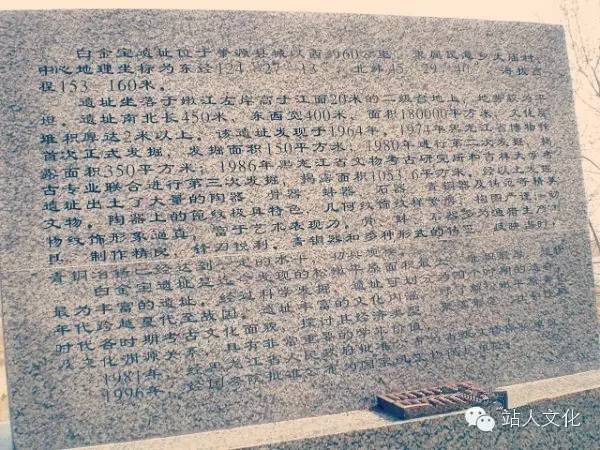 白金宝遗址位于肇源县城以西约60公里，隶属民意乡大庙村，
中心地理坐标为东经124 27 13 ，北纬45 29 40 ，海拔高
程153 160米。
遗址坐落于嫩江左岸高于江面20米的二级台地上，地势较为平
坦，遗址南北长450米，东西宽400米，面积180000平方米，文化层
堆积厚达2米以上。该遗址发现于1964年。1974年黑龙江省博物馆
首次正式发掘，发掘面积150平方米；1980年进行第二次发掘，揭
露面积350平方米；1986年黑龙江省文物考古研究所和吉林大学考
古专业联合进行第三次发掘，揭露面积1053.6平方米，经以上发掘
遗址出土了大量的陶器、骨器、蚌器、石器、青铜器及铸范等精美
文物。陶器上的篦纹极具特色，几何纹饰纹样繁缛，构图严谨，动
物纹饰形象逼真，富于艺术表现力。骨、蚌、石器多为渔猎生产
工具，制作精良，锋刃锐利，青铜器和多种形式的铸范，反映当时
青铜冶铸已经达到一定的水平，
白金宝遗址是迄今发现的松嫩平原面积最大、堆积最厚、
最为丰富的遗址，经过科学发掘，遗址可划分为四个时期的
年代跨越夏代至战国。遗址丰富的文化内涵，
时代各时期考古文化面貌，探讨其经济类型
及文化渊源关系，具有非常重要的学术价值。
1981年，经黑龙江省人民政府批准公布为省级文物保护单位，
1996年，经国务院批准公布为国家
站人文化